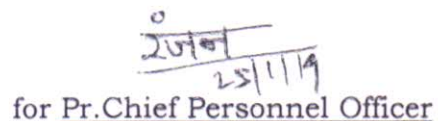 रंजन
25/1/19
for Pr.Chief Personnel Officer